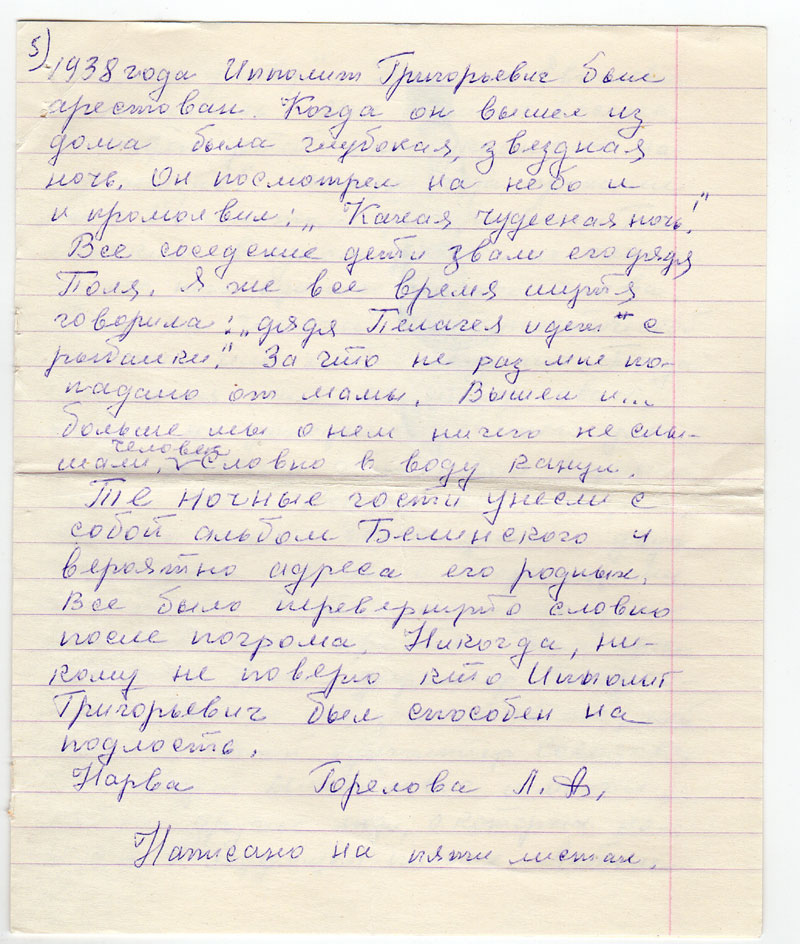 5)
1938 года Ипполит Григорьевич был
арестован. Когда он вышел из
дома была глубокая, звездная
ночь. Он посмотрел на небо и
и промолвил: „Какая чудесная ночь!"
Все соседские дети звали его дядя
Поля. Я же все время шутя
говорила: „дядя Пелагея идет" с
рыбалки." За что не раз мне по-
падало от мамы. Вышел и...
больше мы о нем ничего не слы-
человек
шали, словно в воду канул.
Те ночные гости унесли с
собой альбом Белинского и
вероятно адреса его родных.
Все было перевернуто словно
после погрома. Никогда, ни-
кому не поверю кто Ипполит
Григорьевич был способен на
подлость.
Нарва Горелова Л. А.
Написано на пяти листах.